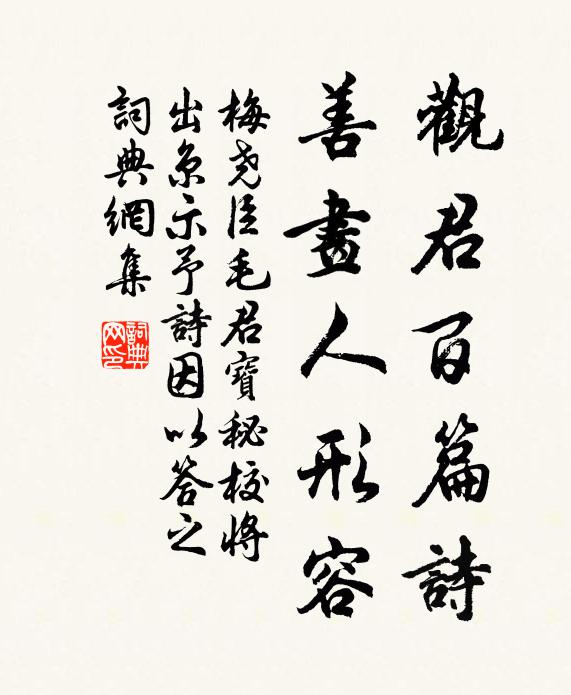 觀君百篇詩
善畫人形容
梅堯臣毛君寶秘校將
出京示予詩因以答之
詞典網集
詞典网印